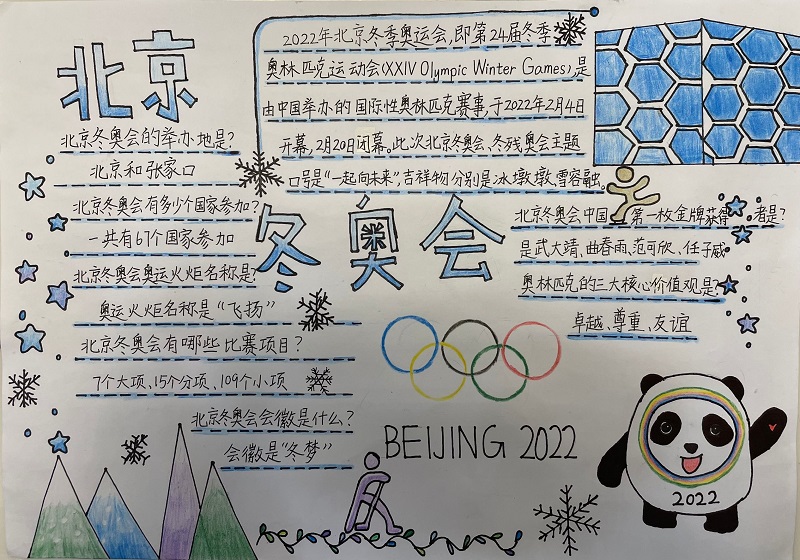 北京
2022年北京冬季奥运会,即第24届冬季
奥林匹克运动会(XXIV Olympic Winter Games),是
由中国举办的国际性奥林匹克赛事,于2022年2月4日
开幕,2月20日闭幕。此次北京冬奥会、冬残奥会主题
口号是“一起向未来”,吉祥物分别是冰墩墩、雪容融。
北京冬奥会的举办地是?
北京和张家口
北京冬奥会有多少个国家参加?
一共有67个国家参加
北京冬奥会奥运火炬名称是?
奥运火炬名称是“飞扬”
北京冬奥会有哪些比赛项目?
7个大项、15个分项、109个小项
北京冬奥会会徽是什么?
会徽是“冬梦”
冬奥会
北京冬奥会中国 第一枚金牌获得者是?
是武大靖、曲春雨、范可欣、任子威
奥林匹克的三大核心价值观是?
卓越、尊重、友谊
BEIJING 2022
2022